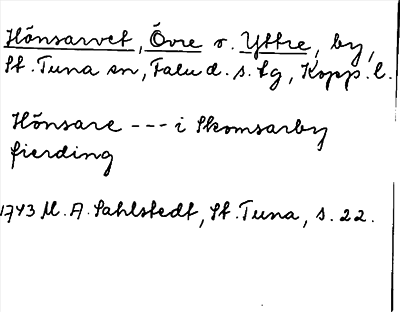 Hönsarvet, Övre o. Yttre, by,
St. Tuna sn, Falu d. s. lg, Kopp. l.
Hönsare --- i Skomsarby
fierding
1743 M. A. Sahlstedt, St. Tuna, s. 22.